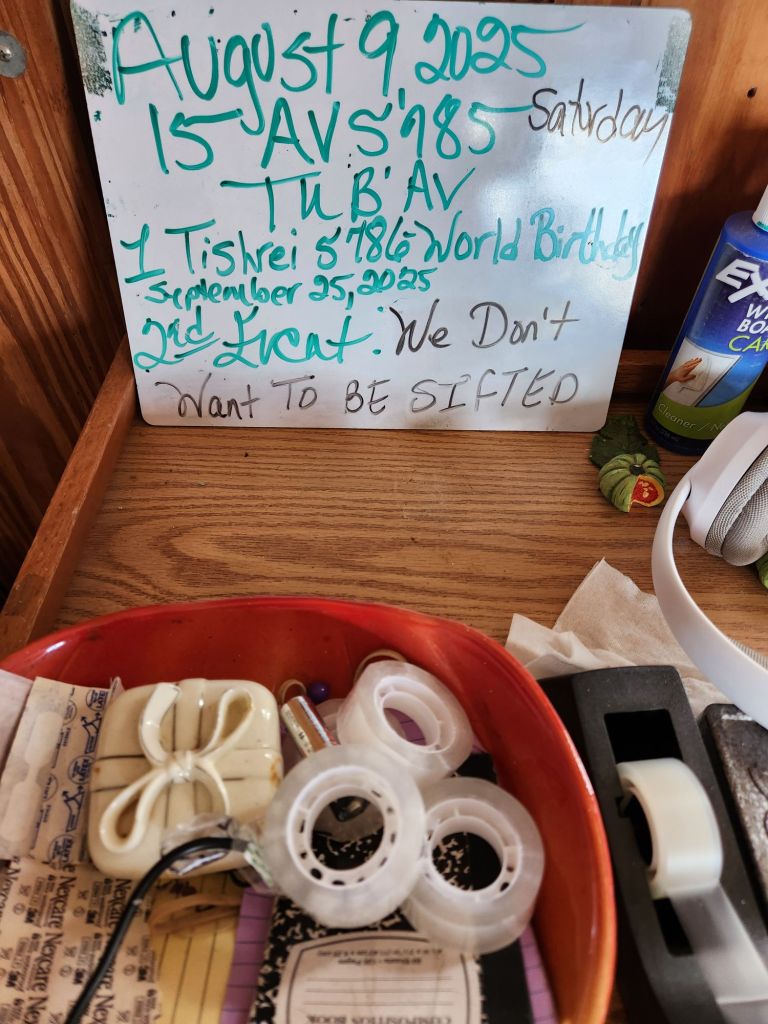 August 9, 2025
15 AV 5'785 Saturday
TU B'AV
1 Tishrei 5786 World Birthday
September 25, 2025
2nd Event: We Don't
Want TO BE SIFTED
EX
BOA
Cleaner /
Nexcare
Nexcare
3M
COMPOSITION BOOK